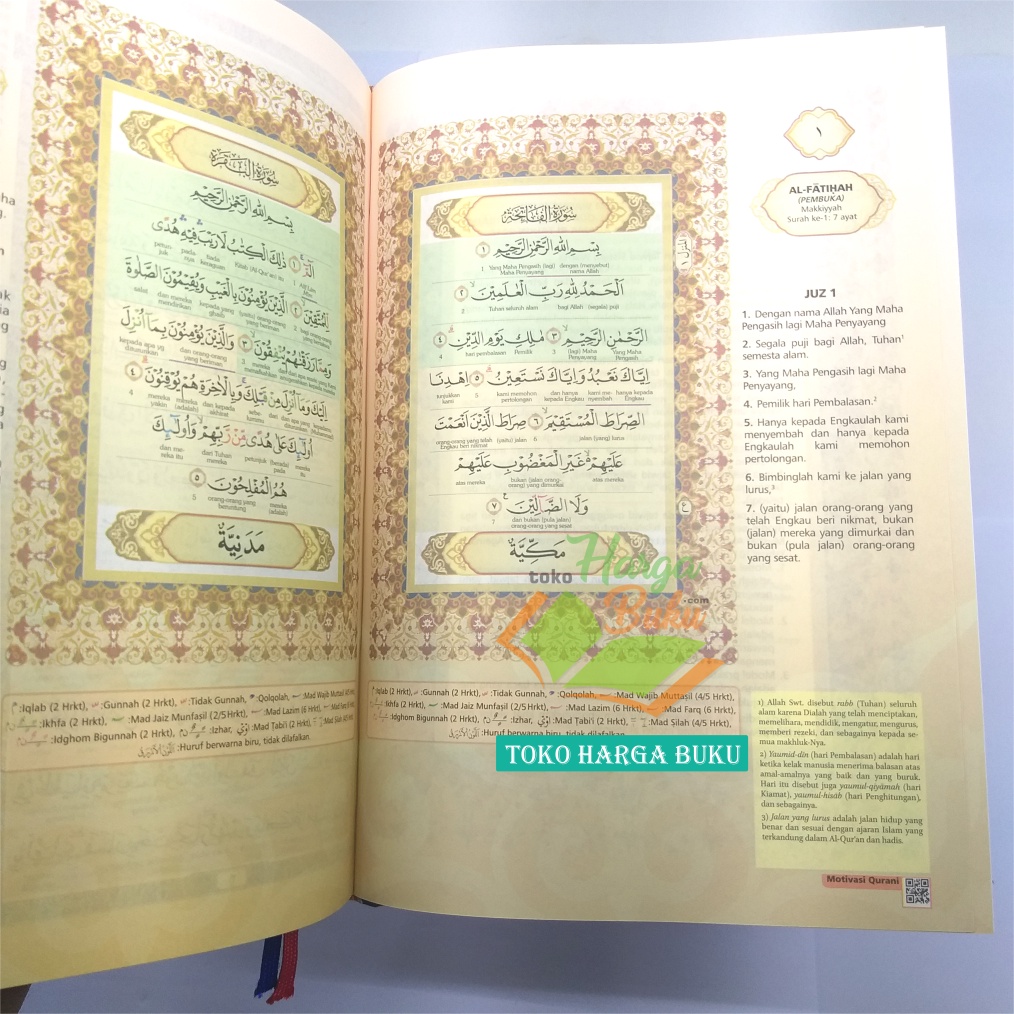 سُوْرَةُ الْفَاتِحَةِ
بِسْمِ اللّٰهِ الرَّحْمٰنِ الرَّحِيْمِ ۝١
1 Yang Maha Pengasih (lagi) Maha Penyayang dengan (menyebut) nama Allah
اَلْحَمْدُ لِلّٰهِ رَبِّ الْعٰلَمِيْنَ ۝٢
2 Tuhan seluruh alam bagi Allah, (segala) puji
الرَّحْمٰنِ الرَّحِيْمِ ۝٣ مٰلِكِ يَوْمِ الدِّيْنِ ۝٤
4 hari pembalasan Pemilik 3 (lagi) Maha Penyayang Yang Maha Pengasih
اِيَّاكَ نَعْبُدُ وَاِيَّاكَ نَسْتَعِيْنُ ۝٥ اِهْدِنَا
tunjukkan kami 5 kami memohon pertolongan dan hanya kepada Engkau kami menyembah hanya kepada Engkau
الصِّرَاطَ الْمُسْتَقِيْمَ ۝٦ صِرَاطَ الَّذِيْنَ اَنْعَمْتَ
orang-orang yang telah Engkau beri nikmat (yaitu) jalan 6 (jalan) yang lurus
عَلَيْهِمْ غَيْرِ الْمَغْضُوْبِ عَلَيْهِمْ
atas mereka bukan (jalan orang-orang) yang dimurkai atas mereka
وَلَا الضَّاۤلِّيْنَ ۝٧
7 dan bukan (pula jalan) orang-orang yang sesat
مَكِّيَّةٌ
١
AL-FĀTIḤAH
(PEMBUKA)
Makkiyyah
Surah ke-1: 7 ayat
JUZ 1
1. Dengan nama Allah Yang Maha
Pengasih lagi Maha Penyayang
2. Segala puji bagi Allah, Tuhan¹
semesta alam.
3. Yang Maha Pengasih lagi Maha
Penyayang,
4. Pemilik hari Pembalasan.²
5. Hanya kepada Engkaulah kami
menyembah dan hanya kepada
Engkaulah kami memohon
pertolongan.
6. Bimbinglah kami ke jalan yang
lurus,³
7. (yaitu) jalan orang-orang yang
telah Engkau beri nikmat, bukan
(jalan) mereka yang dimurkai dan
bukan (pula jalan) orang-orang
yang sesat.
1) Allah Swt. disebut rabb (Tuhan) seluruh
alam karena Dialah yang telah menciptakan,
memelihara, mendidik, mengatur, mengurus,
memberi rezeki, dan sebagainya kepada se-
mua makhluk-Nya.
2) Yaumid-dīn (hari Pembalasan) adalah hari
ketika kelak manusia menerima balasan atas
amal-amalnya yang baik dan yang buruk.
Hari itu disebut juga yaumul-qiyāmah (hari
Kiamat), yaumul-hisāb (hari Penghitungan),
dan sebagainya.
3) Jalan yang lurus adalah jalan hidup yang
benar dan sesuai dengan ajaran Islam yang
terkandung dalam Al-Qur'an dan hadis.
Motivasi Qurani
:Iqlab (2 Hrkt), :Gunnah (2 Hrkt), :Tidak Gunnah, :Qolqolah, :Mad Wajib Muttaṣil (4/5 Hrkt),
:Ikhfa (2 Hrkt), :Mad Jaiz Munfaṣil (2/5 Hrkt), :Mad Lazim (6 Hrkt), :Mad Farq (6 Hrkt),
:Idghom Bigunnah (2 Hrkt), :Izhar, :Mad Tabi'i (2 Hrkt), :Mad Ṣilah (4/5 Hrkt),
:Huruf berwarna biru, tidak dilafalkan.
سُوْرَةُ الْبَقَرَةِ
بِسْمِ اللّٰهِ الرَّحْمٰنِ الرَّحِيْمِ
الۤمّۤ ۝١ ذٰلِكَ الْكِتٰبُ لَا رَيْبَ فِيْهِ هُدًى
لِّلْمُتَّقِيْنَ ۝٢ الَّذِيْنَ يُؤْمِنُوْنَ بِالْغَيْبِ وَيُقِيْمُوْنَ الصَّلٰوةَ
وَمِمَّا رَزَقْنٰهُمْ يُنْفِقُوْنَ ۝٣ وَالَّذِيْنَ يُؤْمِنُوْنَ بِمَآ اُنْزِلَ
اِلَيْكَ وَمَآ اُنْزِلَ مِنْ قَبْلِكَ وَبِالْاٰخِرَةِ هُمْ يُوْقِنُوْنَ ۝٤
اُولٰۤىِٕكَ عَلٰى هُدًى مِّنْ رَّبِّهِمْ وَاُولٰۤىِٕكَ
هُمُ الْمُفْلِحُوْنَ ۝٥
5 orang-orang yang beruntung mereka (adalah)
مَدَنِيَّةٌ
toko Harga Buku .com
TOKO HARGA BUKU